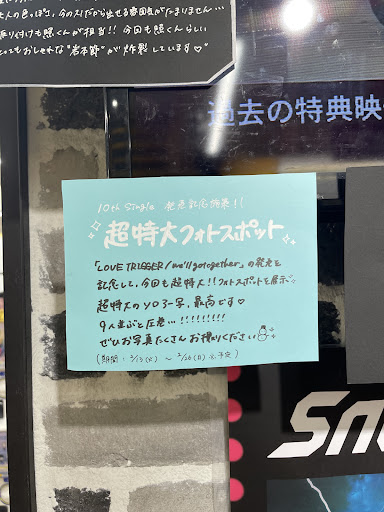 大人の色っぽさ、今の9人だから出せる雰囲気がたまりません…
振り付けも照くんが担当!! 今回も照くんらしい
とってもおしゃれな"岩本節"が炸裂しています♡
過去の特典映
10th Single 発売記念特集!!
超特大フォトスポット
「LOVE TRIGGER/we'll go together」の発売を
記念して、今回も超特大!!フォトスポットを展示
超特大のソロ写、最高です♡
9人並ぶと圧巻…!!!!!!!!!
ぜひお写真たくさんお撮りください
(期間:2/13(火)~2/26(月)※予定)
Sn